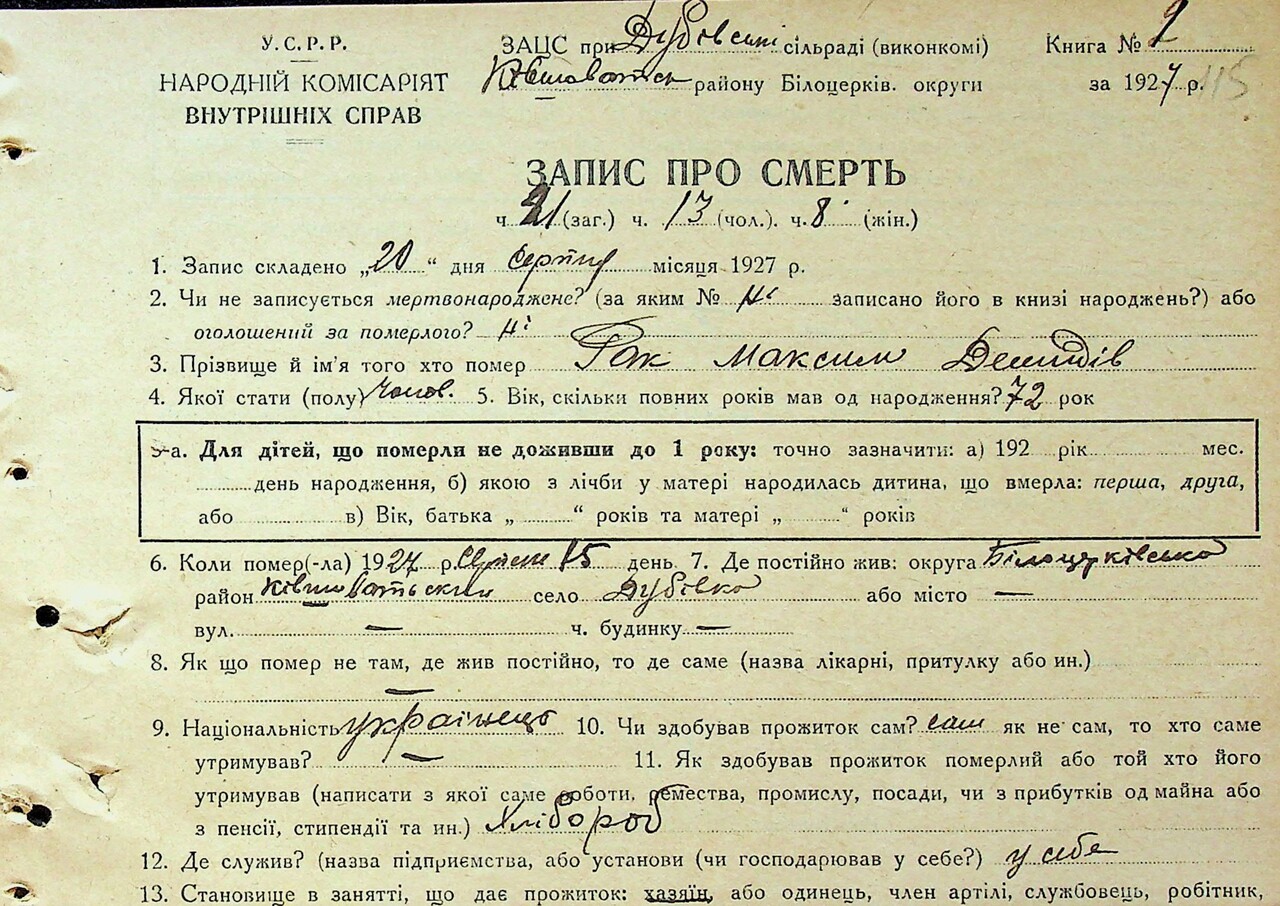 У.С.Р.Р.
НАРОДНІЙ КОМІСАРІЯТ
ВНУТРІШНІХ СПРАВ
ЗАЦС при Дубівські сільраді (виконкомі)
Ківшоватськ району Білоцерків. округи
Книга № 2
за 1927 р. 115
ЗАПИС ПРО СМЕРТЬ
ч. 21 (заг.) ч. 13 (чол.). ч. 8 (жін.)
1. Запис складено „20“ дня серпня місяця 1927 р.
2. Чи не записується мертвонароджене? (за яким № ні записано його в книзі народжень?) або
оголошений за померлого? ні
3. Прізвище й ім'я того хто помер Рак Максим Демидів
4. Якої стати (полу) Чолов. 5. Вік, скільки повних років мав од народження? 72 рок
5-а. Для дітей, що померли не доживши до 1 року: точно зазначити: а) 192 рік мес.
день народження, б) якою з лічби у матері народилась дитина, що вмерла: перша, друга,
або в) Вік, батька „ “ років та матері „ “ років
6. Коли помер(-ла) 1927 р. 15 день 7. Де постійно жив: округа Білоцерківська
район Ківшоватський село Дубівка або місто —
вул. — ч. будинку —
8. Як що помер не там, де жив постійно, то де саме (назва лікарні, притулку або ин.)
—
9. Національність українець 10. Чи здобував прожиток сам? сам як не сам, то хто саме
утримував? — 11. Як здобував прожиток померлий або той хто його
утримував (написати з якої саме роботи, ремества, промислу, посади, чи з прибутків од майна або
з пенсії, стипендії та ин.) Хлібороб
12. Де служив? (назва підприємства, або установи (чи господарював у себе?) у себе
13. Становище в занятті, що дає прожиток: хазяїн, або одинець, член артілі, службовець, робітник,